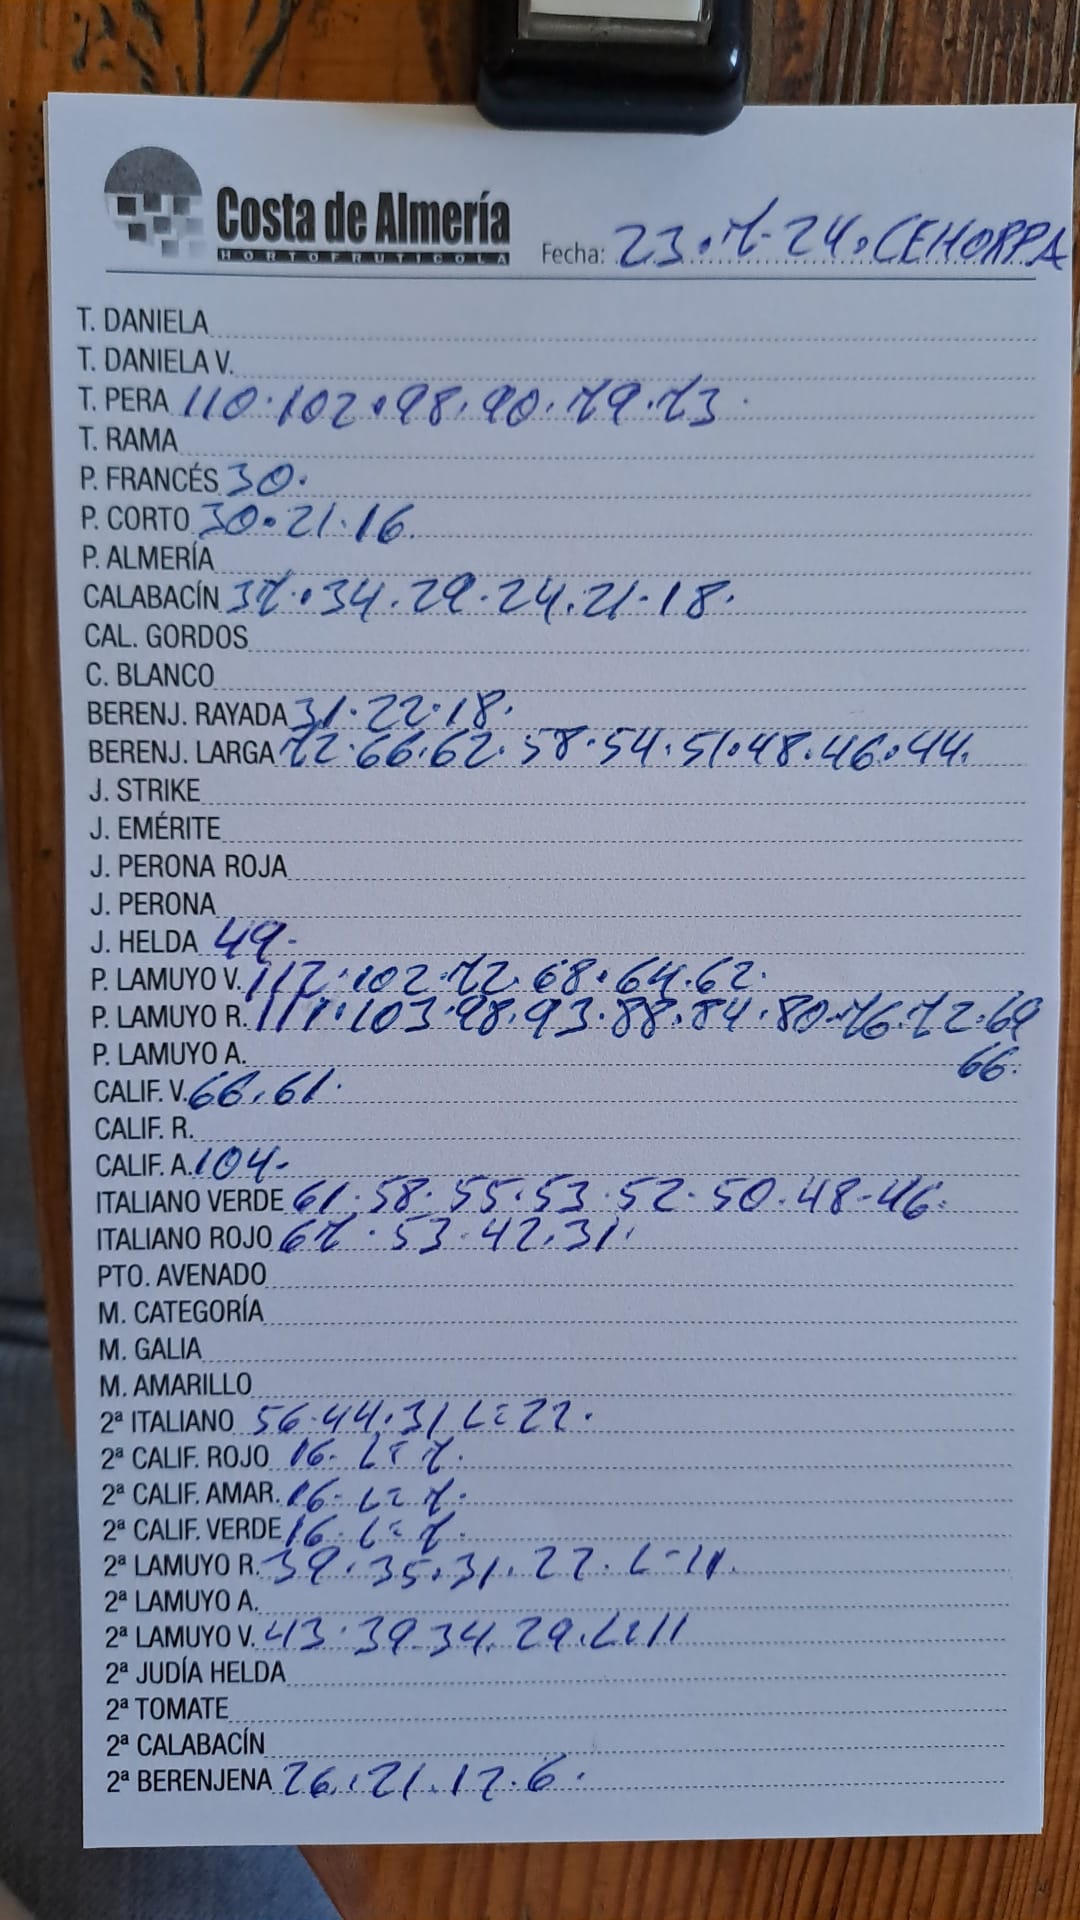 Costa de Almería
HORTOFRUTICOLA
Fecha: 23.7-24.CEHORPA
T. DANIELA
T. DANIELA V.
T. PERA 110.102.98.90.79.73.
T. RAMA
P. FRANCÉS 30.
P. CORTO 30.21.16.
P. ALMERÍA
CALABACÍN 37.34.29.24.21.18.
CAL. GORDOS
C. BLANCO
BERENJ. RAYADA 31.22.18.
BERENJ. LARGA 72.66.62.58.54.51.48.46.44.
J. STRIKE
J. EMÉRITE
J. PERONA ROJA
J. PERONA
J. HELDA 49-
P. LAMUYO V. 117.102.72.68.64.62.
P. LAMUYO R. 111.103.98.93.88.84.80.76.72.69
P. LAMUYO A. 66.
CALIF. V. 66.61.
CALIF. R.
CALIF. A. 104-
ITALIANO VERDE 61.58.55.53.52.50.48-46.
ITALIANO ROJO 67.53.42.31.
PTO. AVENADO
M. CATEGORÍA
M. GALIA
M. AMARILLO
2ª ITALIANO 56.44.31 L=22.
2ª CALIF. ROJO 16. L= 7.
2ª CALIF. AMAR. 16- L= 7.
2ª CALIF. VERDE 16. L= 7.
2ª LAMUYO R. 39.35.31.22. L-11.
2ª LAMUYO A.
2ª LAMUYO V. 43.39.34.29.L=11
2ª JUDÍA HELDA
2ª TOMATE
2ª CALABACÍN
2ª BERENJENA 26.21.12.6.